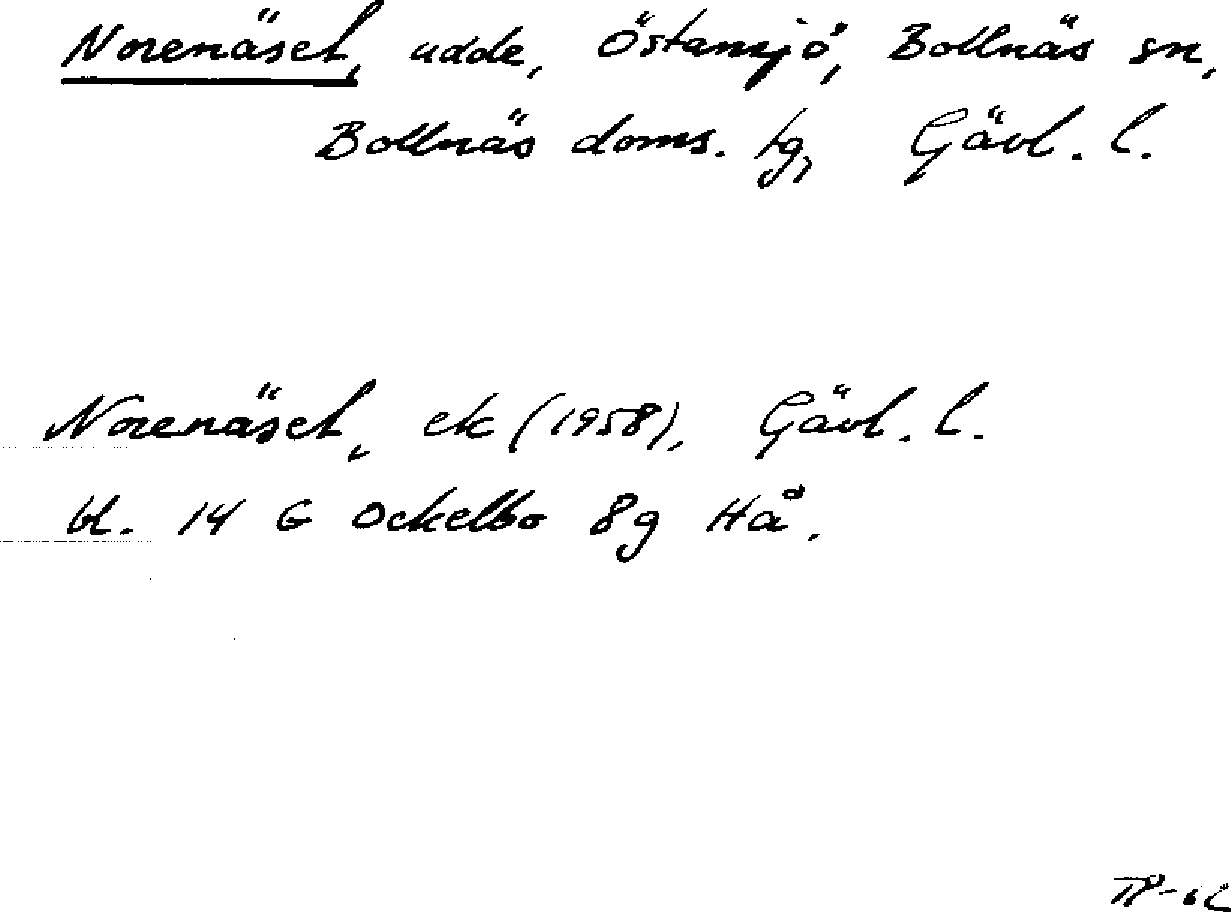 Norenäset, udde, Östansjö, Bollnäs sn,
Bollnäs doms. tg, Gävl. l.
Norenäset, ek (1958), Gävl. l.
bl. 14 G Ockelbo 8g Hå.